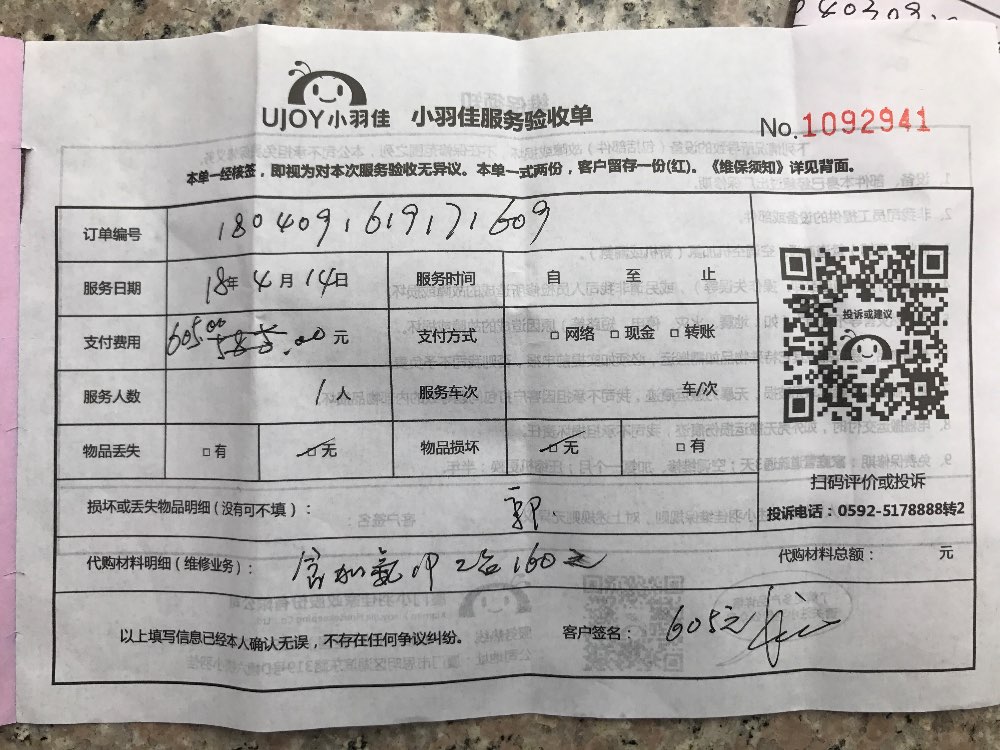 UJOY小羽佳 小羽佳服务验收单
No.1092941
本单一经核签，即视为对本次服务验收无异议。本单一式两份，客户留存一份(红)。《维保须知》详见背面。
订单编号 1804091619171609
服务日期 18年4月14日 服务时间 自 至 止
支付费用 605.00 585.00元 支付方式 □网络 □现金 □转账
服务人数 1人 服务车次 车/次
物品丢失 □有 □无 物品损坏 □无 □有
投诉或建议
扫码评价或投诉
投诉电话：0592-5178888转2
损坏或丢失物品明细（没有可不填）：
代购材料明细（维修业务）： 加氟 2台160元 代购材料总额： 元
以上填写信息已经本人确认无误，不存在任何争议纠纷。 客户签名： 605元